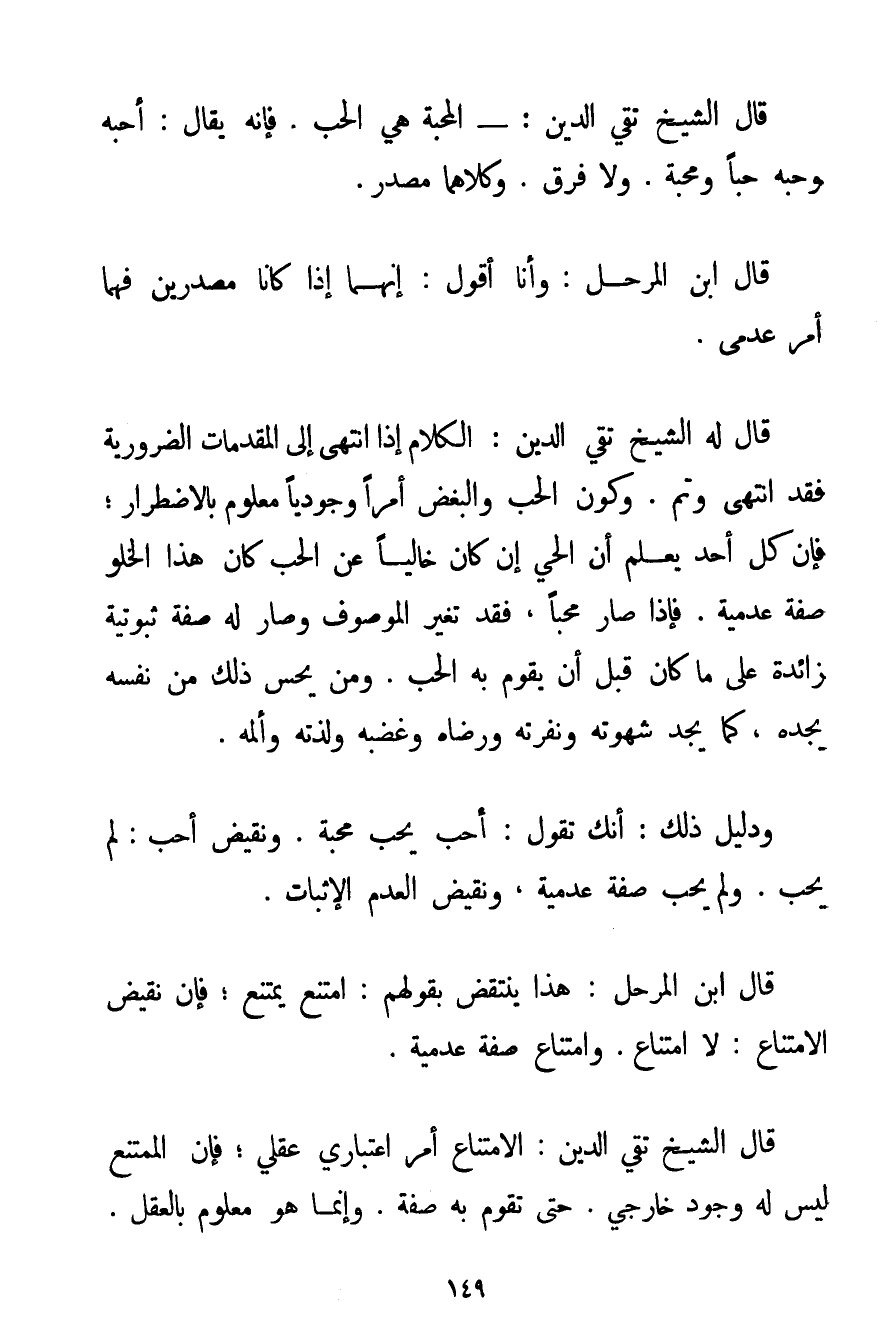 قال الشيخ تقي الدين : — المحبة هي الحب . فإنه يقال : أحبه
وحبه حباً ومحبة . ولا فرق . وكلاهما مصدر .
قال ابن المرحل : وأنا أقول : إنهما إذا كانا مصدرين فهما
أمر عدمى .
قال له الشيخ تقي الدين : الكلام إذا انتهى إلى المقدمات الضرورية
فقد انتهى وتم . وكون الحب والبغض أمراً وجودياً معلوم بالاضطرار ؛
فإن كل أحد يعلم أن الحي إن كان خالياً عن الحب كان هذا الخلو
صفة عدمية . فإذا صار محباً ، فقد تغير الموصوف وصار له صفة ثبوتية
زائدة على ما كان قبل أن يقوم به الحب . ومن يحس ذلك من نفسه
يجده ، كما يجد شهوته ونفرته ورضاه وغضبه ولذته وألمه .
ودليل ذلك : أنك تقول : أحب يحب محبة . ونقيض أحب : لم
يحب . ولم يحب صفة عدمية ، ونقيض العدم الإثبات .
قال ابن المرحل : هذا ينتقض بقولهم : امتنع يمتنع ؛ فإن نقيض
الامتناع : لا امتناع . وامتناع صفة عدمية .
قال الشيخ تقي الدين : الامتناع أمر اعتباري عقلي ؛ فإن الممتنع
ليس له وجود خارجي . حتى تقوم به صفة . وإنما هو معلوم بالعقل .
١٤٩